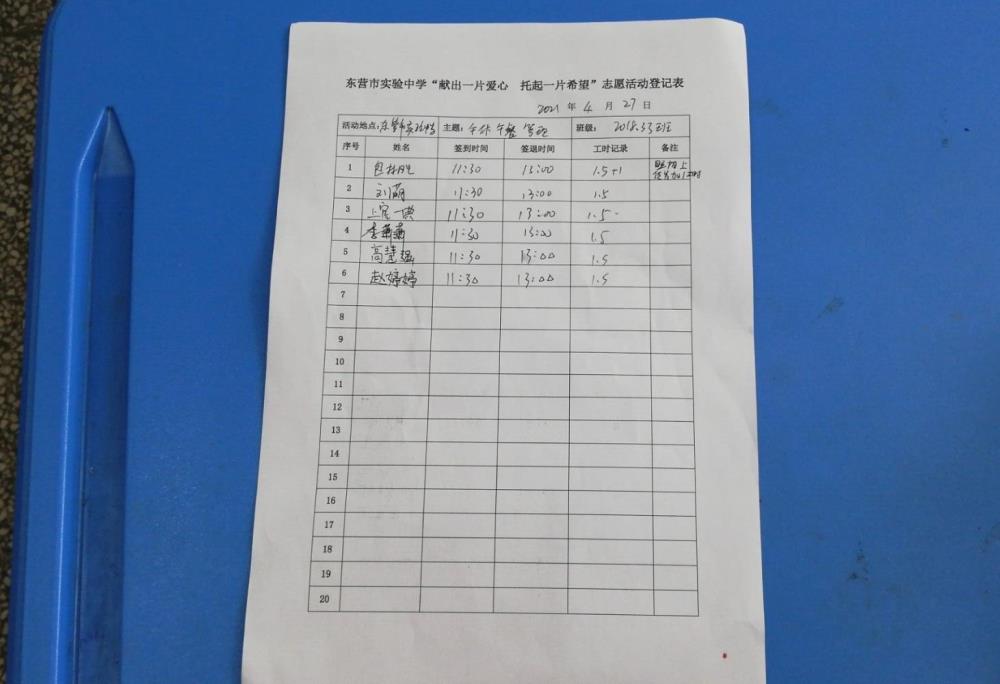 东营市实验中学“献出一片爱心 托起一片希望”志愿活动登记表
2021 年 4 月 27 日
活动地点: 东营市实验中学 主题: 午休午餐管理 班级: 2018.33班
序号 姓名 签到时间 签退时间 工时记录 备注
1 11:30 13:00 1.5+1
2 刘萌 11:30 13:00 1.5
3 上官一典 11:30 13:00 1.5
4 李萧萧 11:30 13:00 1.5
5 高慧强 11:30 13:00 1.5
6 赵婷婷 11:30 13:00 1.5
7
8
9
10
11
12
13
14
15
16
17
18
19
20